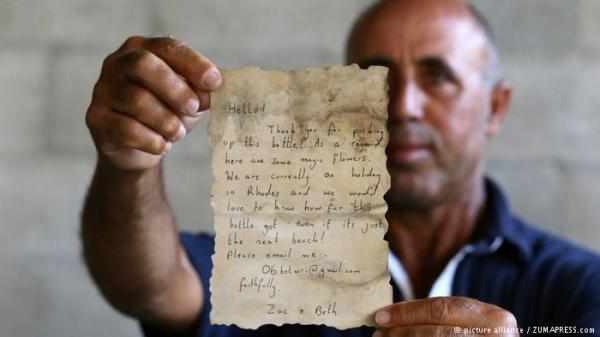 Hello!
Thank you for picking
up this bottle! As a reward
here are some magic flowers.
We are currently on holiday
in Rhodes and we would
love to know how far this
bottle got - even if its just
the next beach!
Please email me:-
@gmail.com
faithfully,
Zac + Beth
© picture alliance / ZUMAPRESS.com